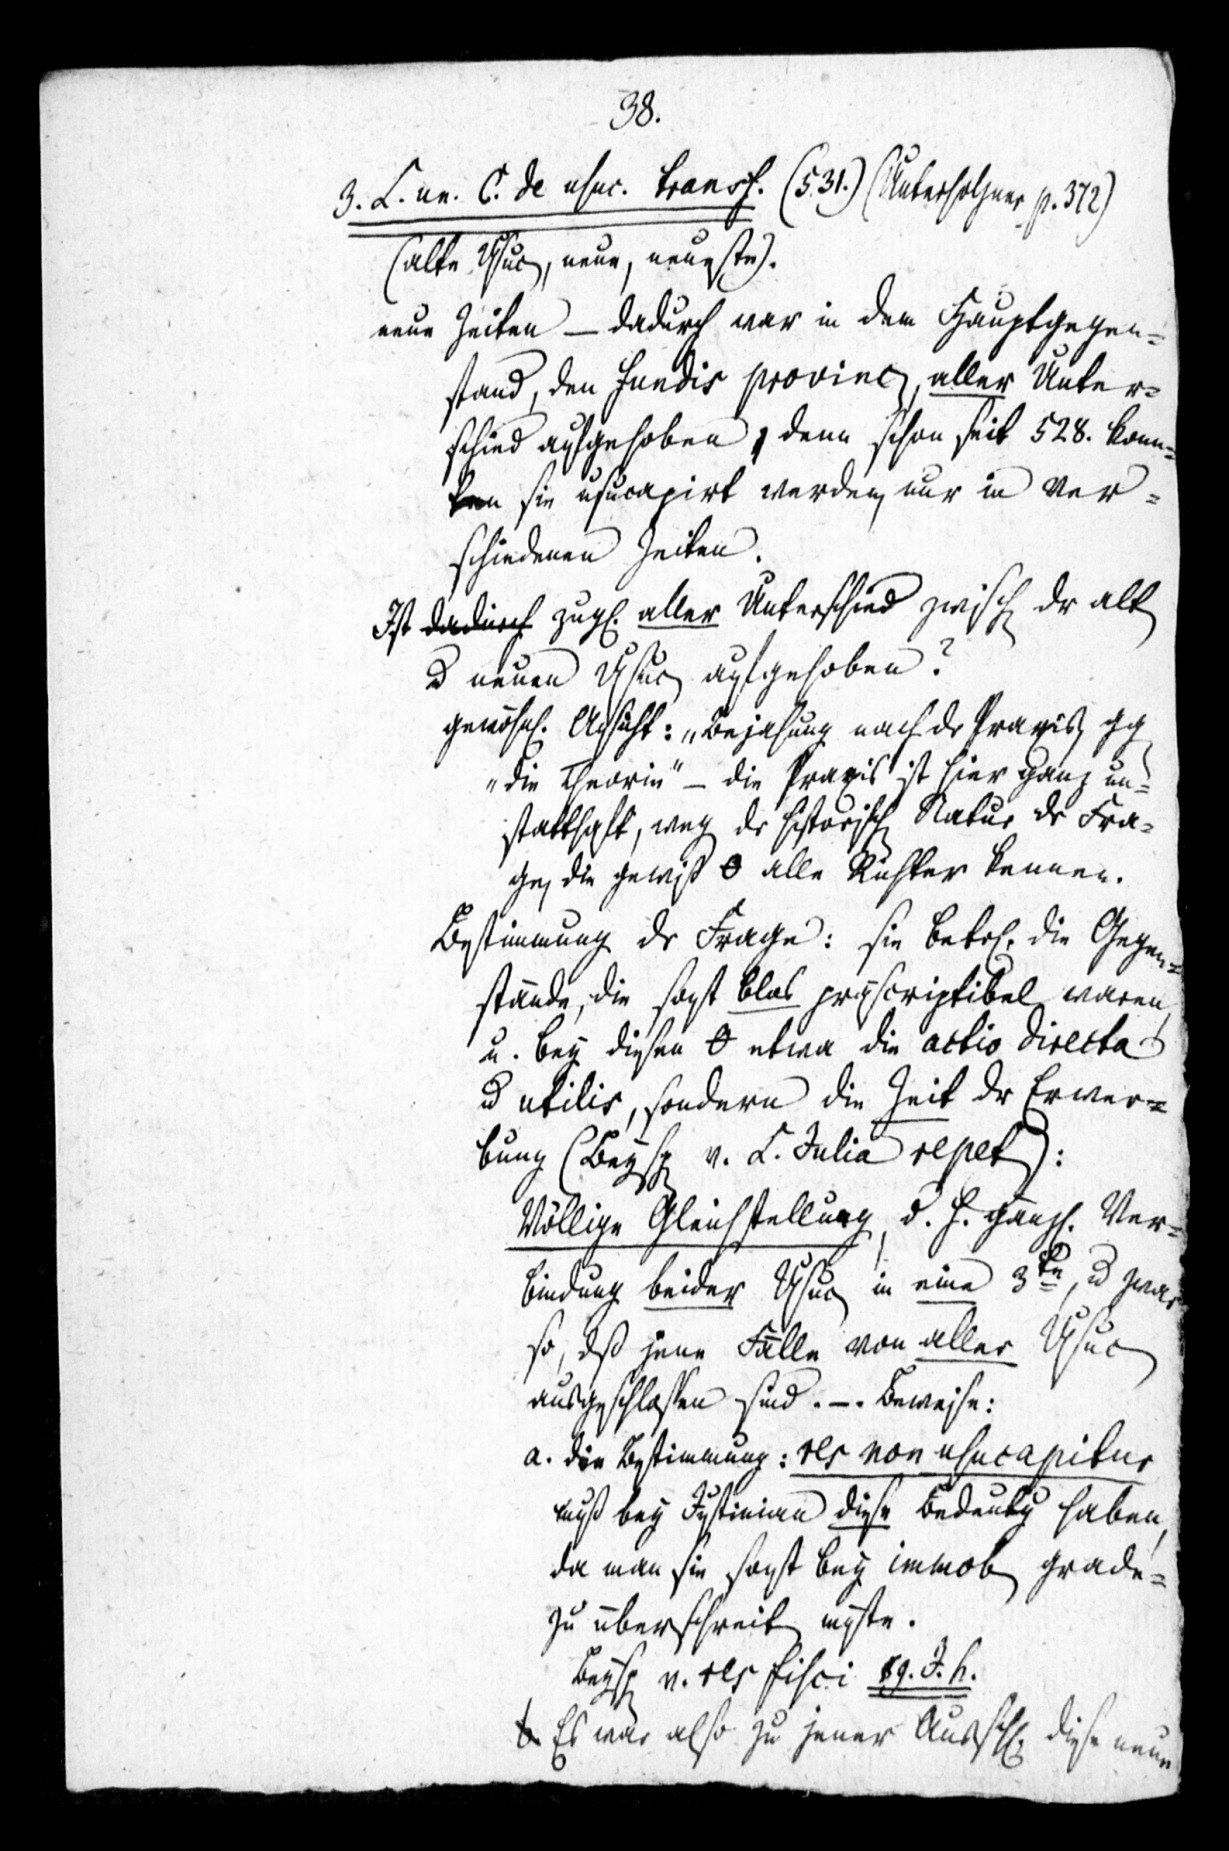 38.
3. L. un. C. de usuc. transf. (531.) (Unterholzner p. 372)
(alte Usuc, neue, neueste).
neue Zeiten – dadurch war in dem Hauptgegen=
stand, den fundis provinc, aller Unter=
schied aufgehoben, denn schon seit 528. konn=
ten sie usucapirt werden, nur in ver=
schiedenen Zeiten.
Ist dadurch zugl. aller Unterschied zwisch dr alt
u neuen Usuc aufgehoben?
gewöhnl. Ansicht: „Bejahung nach dr Praxis, gg
„die Theorie“ – die Praxis ist hier ganz un=
statthaft, weg dr historisch Natur dr Fra=
ge, die gewiß 0 alle Richter kennen.
Bestimmung dr Frage: sie betrf. die Gegen=
stände, die sonst blos präscriptibel waren,
u. bey diesen 0 etwa die actio directa
u utilis, sondern die Zeit dr Erwer=
bung (Beysp v. L. Julia repet):
Völlige Gleichstellung, d. h. gänzl. Ver=
bindung beider Usuc in eine 3te, u zwar
so, dß jene Fälle von aller Usuc
ausgeschlossen sind. –. Beweise:
a. die Bestimmung: res non usucapitur
muß bey Justinian diese Bedeutg haben,
da man sie sonst bey immob grade=
zu überschreit müste.
Beysp v. res fisci §9. J. h.
b Es war also zu jener Ausschl. diese neue